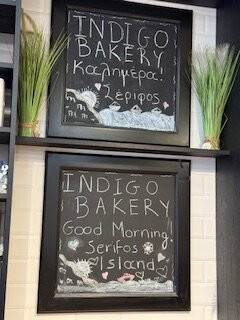 INDIGO
BAKERY
Καλημερα!
Σέριφος
INDIGO
BAKERY
Good Morning!
Serifos
Island